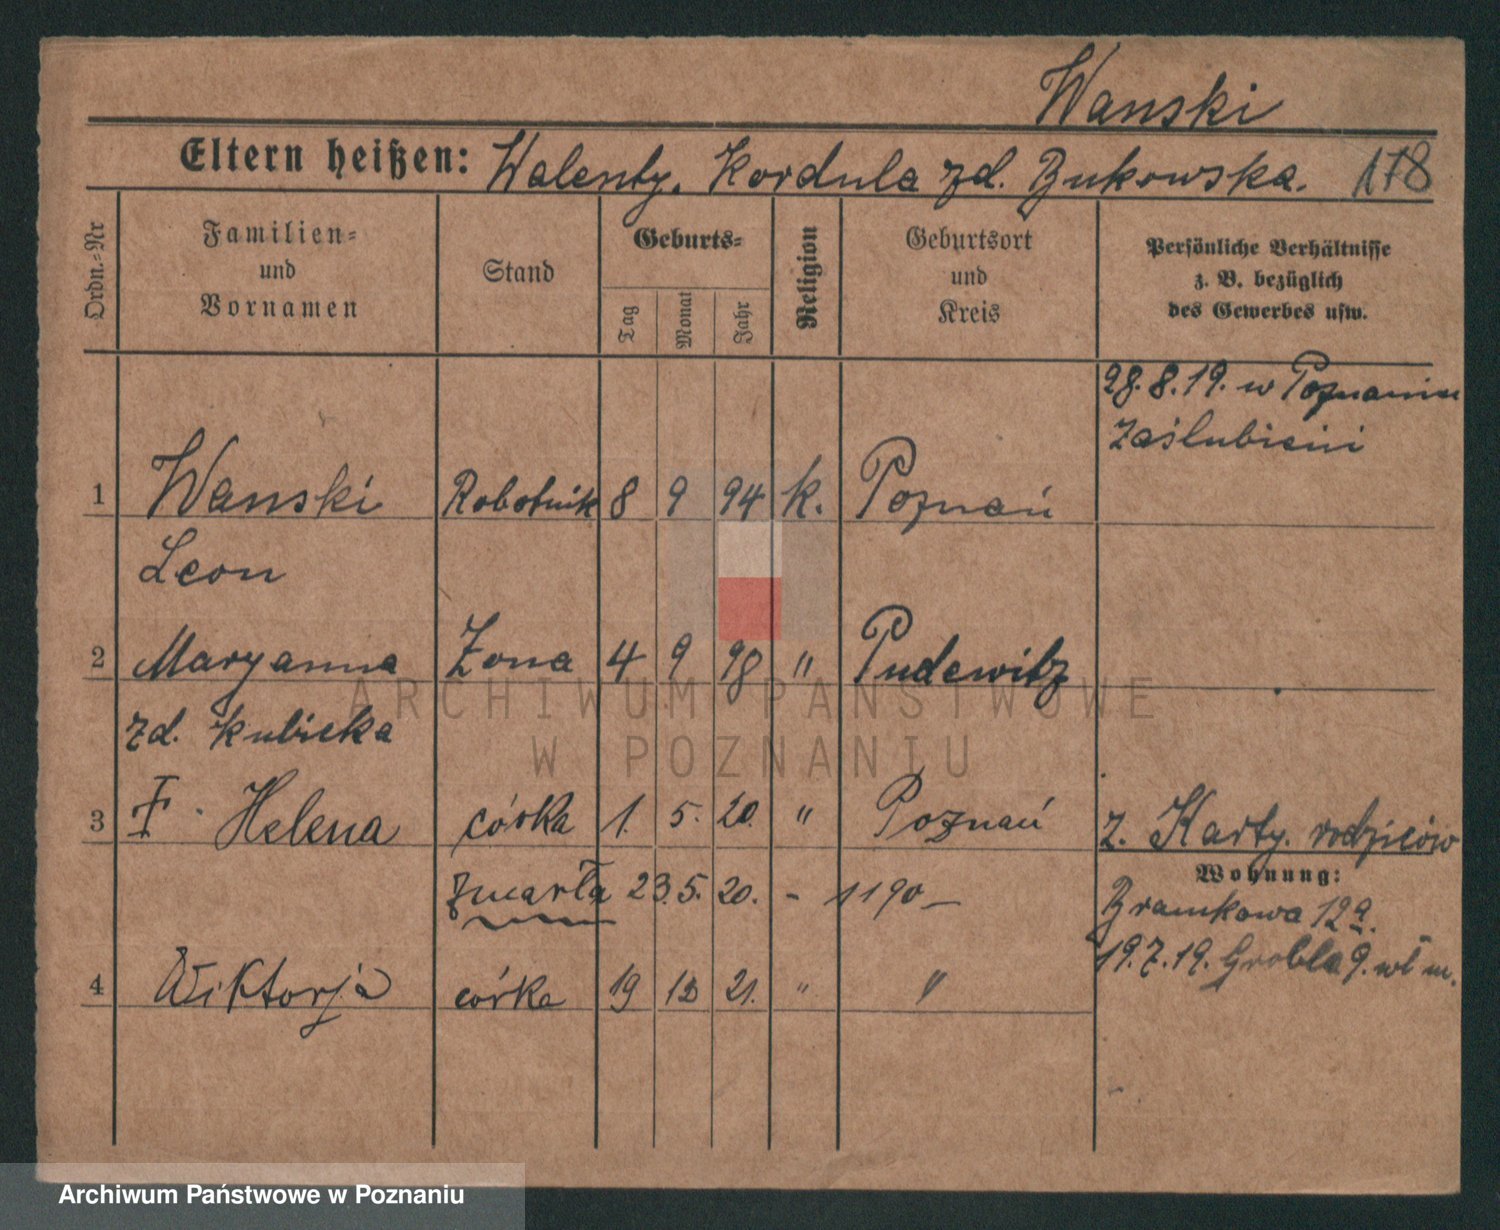 Wanski
Eltern heißen: Walenty. Kordula zd. Bukowska. 178
Ordn.=Nr
Familien=
und
Vornamen
Stand
Geburts=
Tag
Monat
Jahr
Religion
Geburtsort
und
Kreis
Persönliche Verhältnisse
z. B. bezüglich
des Gewerbes usw.
28.8.19. w Poznaniu
zaślubieni
1 Wanski Robotnik 8 9 94 k. Poznań
Leon
2 Maryanna Żona 4 9 98 " Pudewitz
zd. Kubicka
3 Helena córka 1. 5. 20. " Poznań z. Karty. rodziców
zmarła 23.5. 20. - 1190 –
Wohnung:
Bramkowa 12a.
19.7.19. Grobla 9. wł m.
4 Wiktorja córka 19 12 21. " "
ARCHIWUM PAŃSTWOWE
W POZNANIU
Archiwum Państwowe w Poznaniu